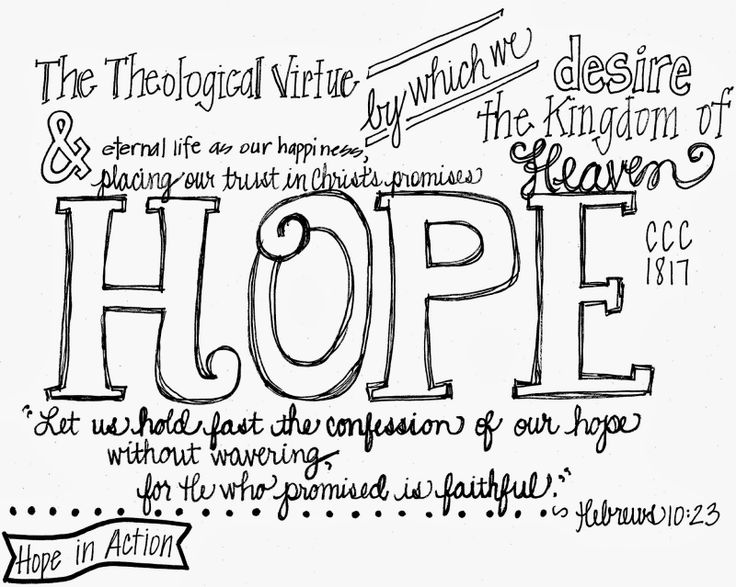 The Theological Virtue by which we desire
the Kingdom of
Heaven
& eternal life as our happiness,
placing our trust in Christ's promises
HOPE
CCC
1817
"Let us hold fast the confession of our hope
without wavering,
for He who promised is faithful."
~ Hebrews 10:23
Hope in Action